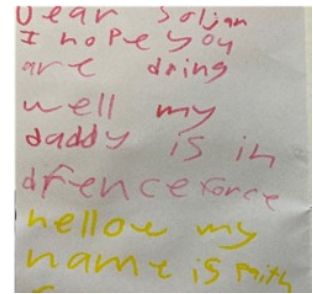 Dear Soljan
I hope you
are doing
well my
daddy is in
dfence force
hellow my
name is